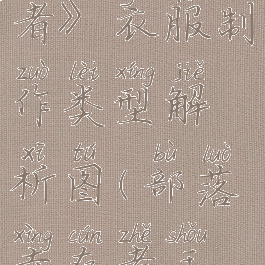 者》 衣服制
zuò lèi xíng jiě
作类型解
xī tú bù luò
析图(部落
xìng cún zhě shǒu